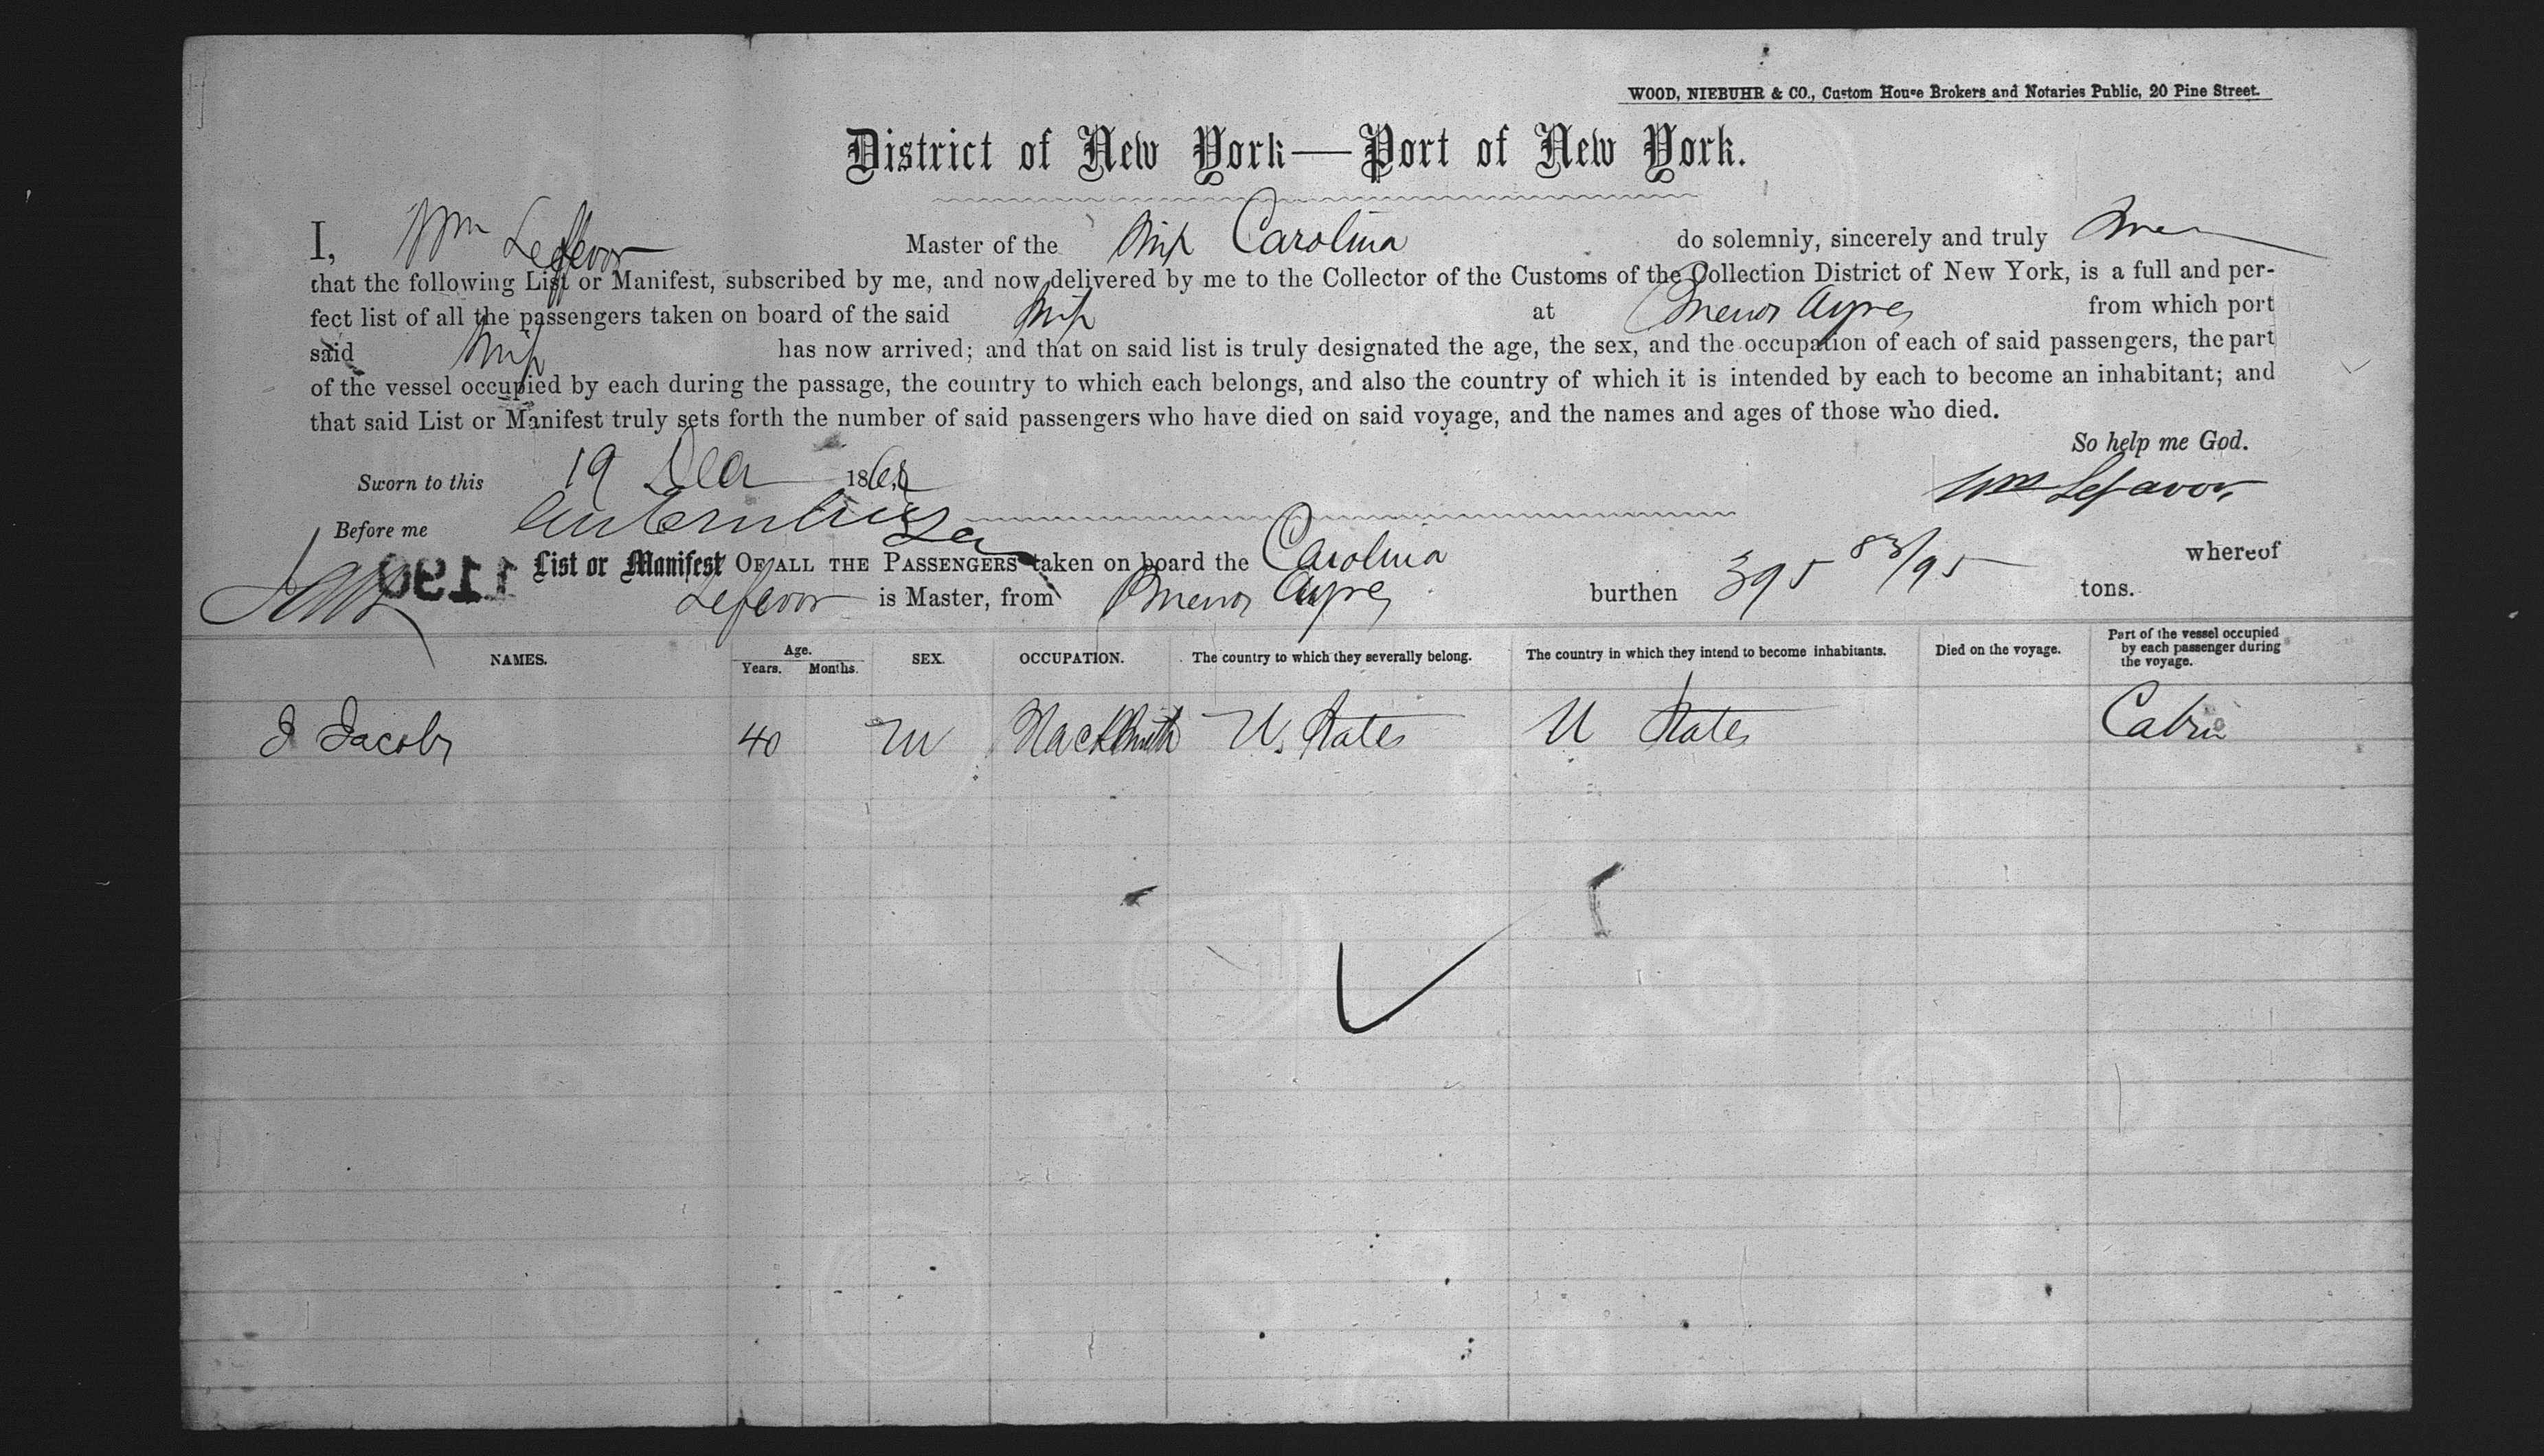 WOOD, NIEBUHR & CO., Custom House Brokers and Notaries Public, 20 Pine Street.
District of New York—Port of New York.
I, Wm Lefevor Master of the Ship Carolina do solemnly, sincerely and truly swear
that the following List or Manifest, subscribed by me, and now delivered by me to the Collector of the Customs of the Collection District of New York, is a full and per-
fect list of all the passengers taken on board of the said Ship at Buenos Ayres from which port
said Ship has now arrived; and that on said list is truly designated the age, the sex, and the occupation of each of said passengers, the part
of the vessel occupied by each during the passage, the country to which each belongs, and also the country of which it is intended by each to become an inhabitant; and
that said List or Manifest truly sets forth the number of said passengers who have died on said voyage, and the names and ages of those who died.
So help me God.
Sworn to this 19 Dec 186 Wm Lefavor
Before me
1190 List or Manifest OF ALL THE PASSENGERS taken on board the Carolina whereof
Lefevor is Master, from Buenos Ayres burthen 395 83/95 tons.
NAMES. Age. Years. Months. SEX. OCCUPATION. The country to which they severally belong. The country in which they intend to become inhabitants. Died on the voyage. Part of the vessel occupied by each passenger during the voyage.
J Jacobs 40 M Blacksmith U. States U States Cabin